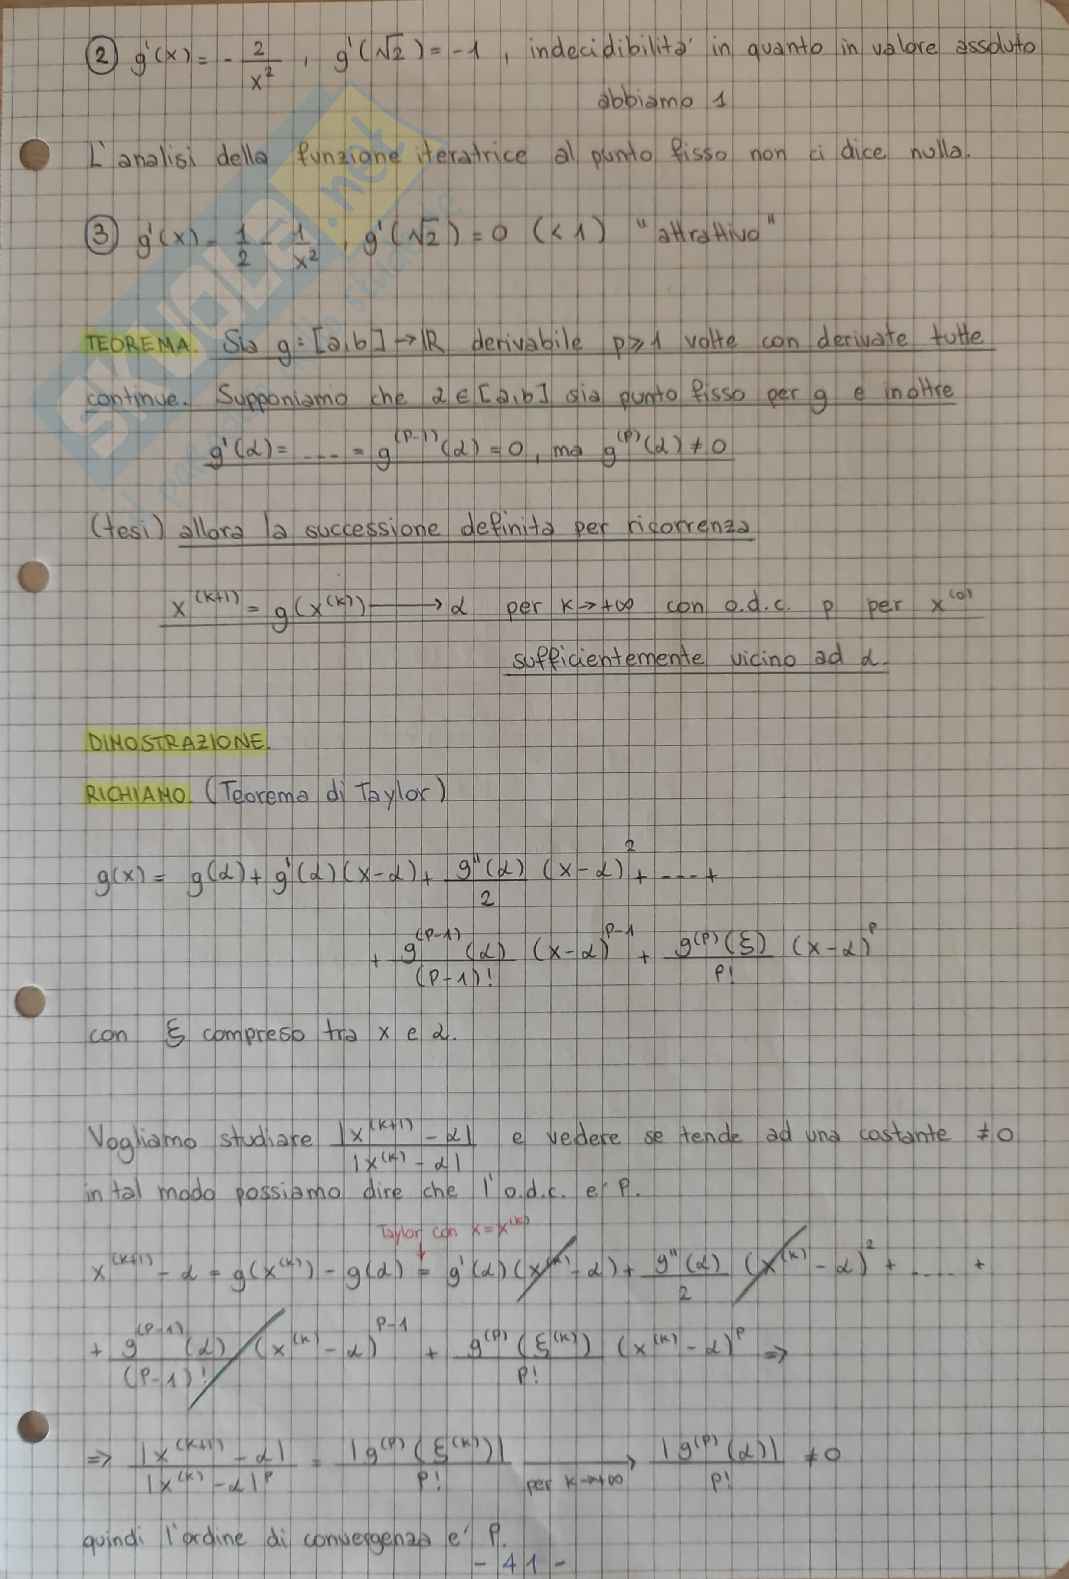 ② g'(x) = - 2/x² , g'(√2) = -1 , indecidibilità in quanto in valore assoluto
abbiamo 1
L'analisi della funzione iteratrice al punto fisso non ci dice nulla.
③ g'(x) = 1/2 - 1/x² , g'(√2) = 0 (< 1) "attrattivo"
TEOREMA. Sia g: [a,b] → ℝ derivabile p ≥ 1 volte con derivate tutte
continue. Supponiamo che α ∈ [a,b] sia punto fisso per g e inoltre
g'(α) = .... = g^(p-1)(α) = 0, ma g^(p)(α) ≠ 0
(tesi) allora la successione definita per ricorrenza
x^(k+1) = g(x^(k)) → α per k → +∞ con o.d.c. p per x^(0)
sufficientemente vicino ad α.
DIMOSTRAZIONE.
RICHIAMO (Teorema di Taylor)
g(x) = g(α) + g'(α)(x-α) + g''(α)/2 (x-α)² + .... +
+ g^(p-1)(α)/(p-1)! (x-α)^p-1 + g^(p)(ξ)/p! (x-α)^p
con ξ compreso tra x e α.
Vogliamo studiare |x^(k+1) - α| / |x^(k) - α| e vedere se tende ad una costante ≠ 0
in tal modo possiamo dire che l'o.d.c. è p.
Taylor con x = x^(k)
x^(k+1) - α = g(x^(k)) - g(α) = g'(α)(x^(k) - α) + g''(α)/2 (x^(k) - α)² + ..... +
+ g^(p-1)(α)/(p-1)! (x^(k) - α)^p-1 + g^(p)(ξ^(k))/p! (x^(k) - α)^p ⇒
⇒ |x^(k+1) - α| / |x^(k) - α|^p = |g^(p)(ξ^(k))| / p! → per k→+∞ |g^(p)(α)| / p! ≠ 0
quindi l'ordine di convergenza è p.
- 41 -
SKUOLA.net